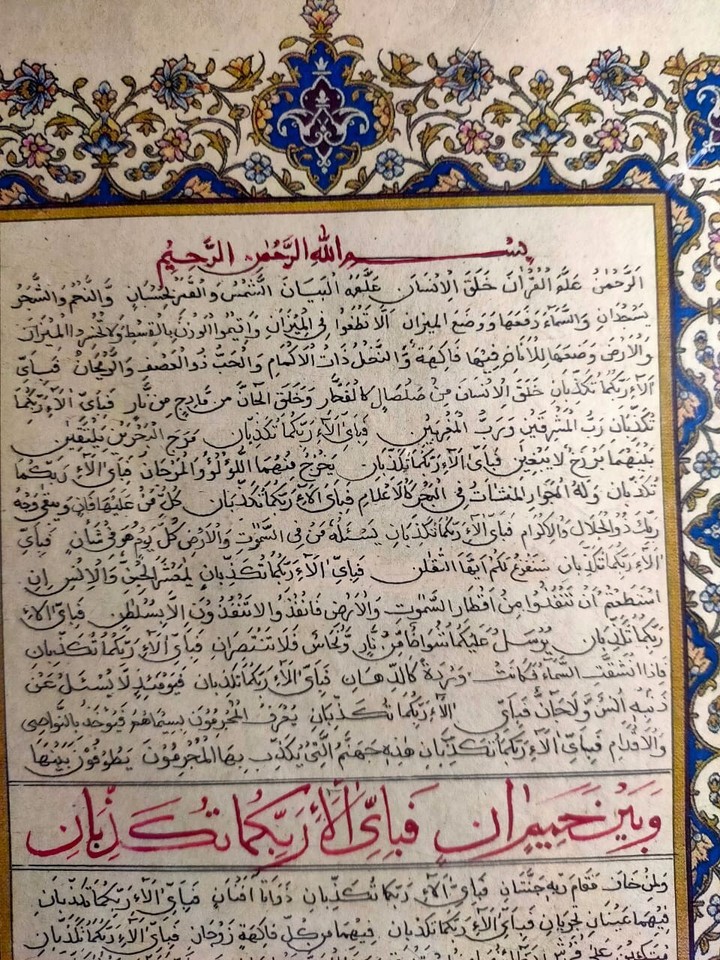 بسم الله الرحمن الرحيم
الرَّحْمٰنُ عَلَّمَ الْقُرْاٰنَ خَلَقَ الْاِنْسَانَ عَلَّمَهُ الْبَيَانَ الشَّمْسُ وَالْقَمَرُ بِحُسْبَانٍ وَّالنَّجْمُ وَالشَّجَرُ
يَسْجُدَانِ وَالسَّمَآءَ رَفَعَهَا وَوَضَعَ الْمِيْزَانَ اَلَّا تَطْغَوْا فِي الْمِيْزَانِ وَاَقِيْمُوا الْوَزْنَ بِالْقِسْطِ وَلَا تُخْسِرُوا الْمِيْزَانَ
وَالْاَرْضَ وَضَعَهَا لِلْاَنَامِ فِيْهَا فَاكِهَةٌ وَّالنَّخْلُ ذَاتُ الْاَكْمَامِ وَالْحَبُّ ذُو الْعَصْفِ وَالرَّيْحَانُ فَبِاَيِّ
اٰلَآءِ رَبِّكُمَا تُكَذِّبَانِ خَلَقَ الْاِنْسَانَ مِنْ صَلْصَالٍ كَالْفَخَّارِ وَخَلَقَ الْجَانَّ مِنْ مَّارِجٍ مِنْ نَّارٍ فَبِاَيِّ اٰلَآءِ رَبِّكُمَا
تُكَذِّبَانِ رَبُّ الْمَشْرِقَيْنِ وَرَبُّ الْمَغْرِبَيْنِ فَبِاَيِّ اٰلَآءِ رَبِّكُمَا تُكَذِّبَانِ مَرَجَ الْبَحْرَيْنِ يَلْتَقِيٰنِ
بَيْنَهُمَا بَرْزَخٌ لَّا يَبْغِيٰنِ فَبِاَيِّ اٰلَآءِ رَبِّكُمَا تُكَذِّبَانِ يَخْرُجُ مِنْهُمَا اللُّؤْلُؤُ وَالْمَرْجَانُ فَبِاَيِّ اٰلَآءِ رَبِّكُمَا
تُكَذِّبَانِ وَلَهُ الْجَوَارِ الْمُنْشَاٰتُ فِي الْبَحْرِ كَالْاَعْلَامِ فَبِاَيِّ اٰلَآءِ رَبِّكُمَا تُكَذِّبَانِ كُلُّ مَنْ عَلَيْهَا فَانٍ وَيَبْقٰى وَجْهُ
رَبِّكَ ذُو الْجَلَالِ وَالْاِكْرَامِ فَبِاَيِّ اٰلَآءِ رَبِّكُمَا تُكَذِّبَانِ يَسْئَلُهُ مَنْ فِي السَّمٰوٰتِ وَالْاَرْضِ كُلَّ يَوْمٍ هُوَ فِيْ شَاْنٍ فَبِاَيِّ
اٰلَآءِ رَبِّكُمَا تُكَذِّبَانِ سَنَفْرُغُ لَكُمْ اَيُّهَ الثَّقَلٰنِ فَبِاَيِّ اٰلَآءِ رَبِّكُمَا تُكَذِّبَانِ يٰمَعْشَرَ الْجِنِّ وَالْاِنْسِ اِنِ
اسْتَطَعْتُمْ اَنْ تَنْفُذُوْا مِنْ اَقْطَارِ السَّمٰوٰتِ وَالْاَرْضِ فَانْفُذُوْا لَا تَنْفُذُوْنَ اِلَّا بِسُلْطٰنٍ فَبِاَيِّ اٰلَآءِ
رَبِّكُمَا تُكَذِّبَانِ يُرْسَلُ عَلَيْكُمَا شُوَاظٌ مِّنْ نَّارٍ وَّنُحَاسٌ فَلَا تَنْتَصِرَانِ فَبِاَيِّ اٰلَآءِ رَبِّكُمَا تُكَذِّبَانِ
فَاِذَا انْشَقَّتِ السَّمَآءُ فَكَانَتْ وَرْدَةً كَالدِّهَانِ فَبِاَيِّ اٰلَآءِ رَبِّكُمَا تُكَذِّبَانِ فَيَوْمَئِذٍ لَّا يُسْئَلُ عَنْ
ذَنْبِهٖ اِنْسٌ وَّلَا جَانٌّ فَبِاَيِّ اٰلَآءِ رَبِّكُمَا تُكَذِّبَانِ يُعْرَفُ الْمُجْرِمُوْنَ بِسِيْمَاهُمْ فَيُؤْخَذُ بِالنَّوَاصِيْ
وَالْاَقْدَامِ فَبِاَيِّ اٰلَآءِ رَبِّكُمَا تُكَذِّبَانِ هٰذِهٖ جَهَنَّمُ الَّتِيْ يُكَذِّبُ بِهَا الْمُجْرِمُوْنَ يَطُوْفُوْنَ بَيْنَهَا
وَبَيْنَ حَمِيْمٍ اٰنٍ فَبِاَيِّ اٰلَآءِ رَبِّكُمَا تُكَذِّبَانِ
وَلِمَنْ خَافَ مَقَامَ رَبِّهٖ جَنَّتَانِ فَبِاَيِّ اٰلَآءِ رَبِّكُمَا تُكَذِّبَانِ ذَوَاتَا اَفْنَانٍ فَبِاَيِّ اٰلَآءِ رَبِّكُمَا تُكَذِّبَانِ
فِيْهِمَا عَيْنَانِ تَجْرِيَانِ فَبِاَيِّ اٰلَآءِ رَبِّكُمَا تُكَذِّبَانِ فِيْهِمَا مِنْ كُلِّ فَاكِهَةٍ زَوْجَانِ فَبِاَيِّ اٰلَآءِ رَبِّكُمَا تُكَذِّبَانِ